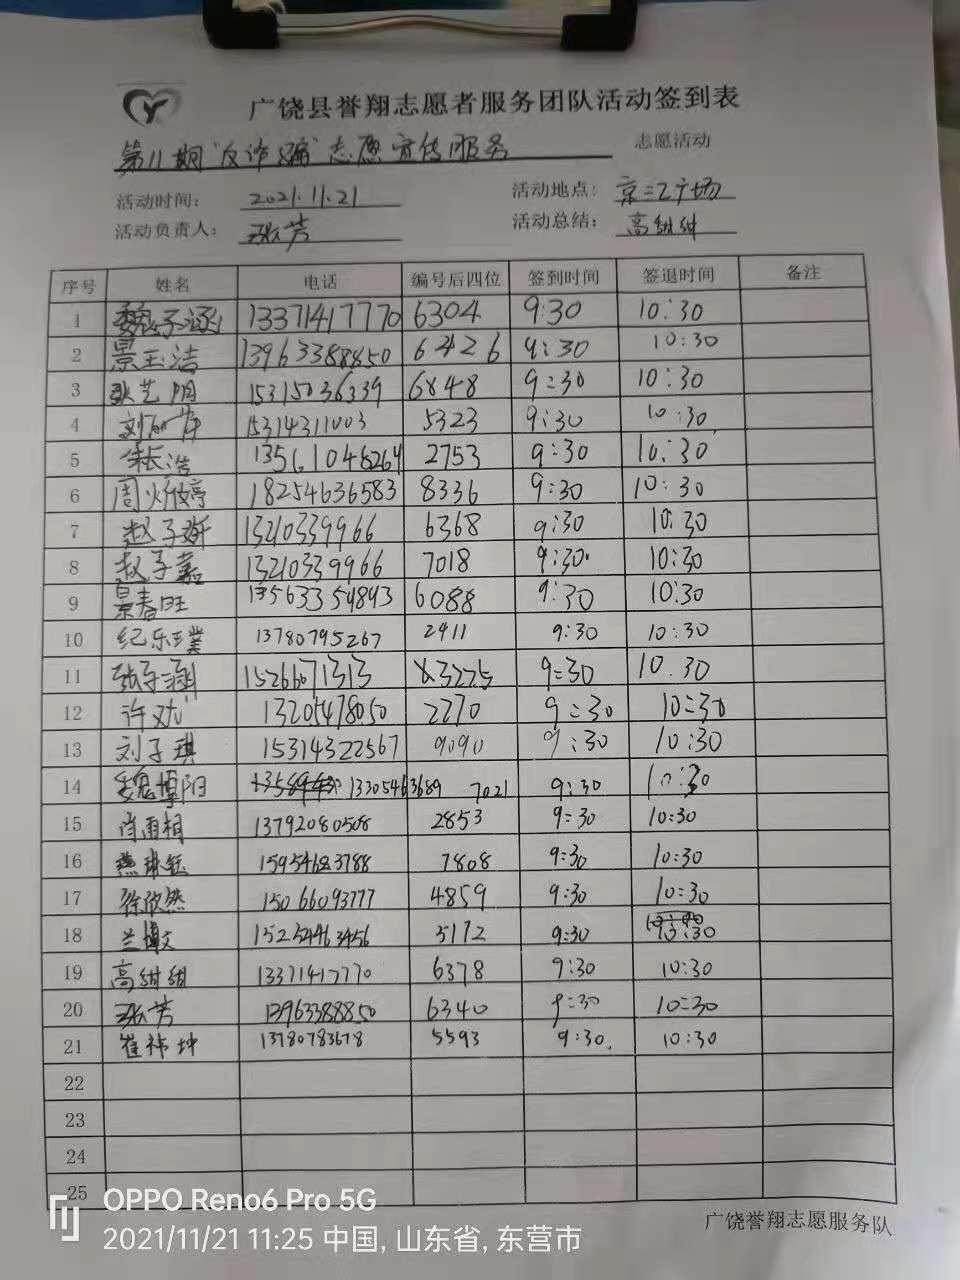 广饶县誉翔志愿者服务团队活动签到表
第11期"反诈骗"志愿宣传服务 志愿活动
活动时间: 2021.11.21 活动地点: 广场
活动负责人: 张芳 活动总结: 高甜甜
序号 姓名 电话 编号后四位 签到时间 签退时间 备注
1 魏子涵 13371417770 6304 9:30 10:30
2 景玉洁 13963388850 6426 9:30 10:30
3 张艺明 15315036339 6848 9:30 10:30
4 刘 15314311003 5323 9:30 10:30
5 张浩 13561048264 2753 9:30 10:30
6 周 18254636583 8336 9:30 10:30
7 赵子 13210339966 6368 9:30 10:30
8 赵子嘉 13210339966 7018 9:30 10:30
9 景春旺 13563354843 6088 9:30 10:30
10 纪乐璞 13780795267 2411 9:30 10:30
11 张子涵 15266071313 3225 9:30 10.30
12 许 13205478050 2270 9:30 10:30
13 刘子琪 15314322567 9090 9:30 10:30
14 魏博阳 13305463689 7021 9:30 10:30
15 肖雨桐 13792080508 2853 9:30 10:30
16 燕琳钰 15954683788 7808 9:30 10:30
17 徐欣然 15066093777 4859 9:30 10:30
18 兰博文 15225463456 5172 9:30 10:30
19 高甜甜 13371417770 6378 9:30 10:30
20 张芳 13963388850 6340 9:30 10:30
21 崔祎坤 13780783678 5593 9:30 10:30
22
23
24
25
广饶誉翔志愿服务队
OPPO Reno6 Pro 5G
2021/11/21 11:25 中国, 山东省, 东营市